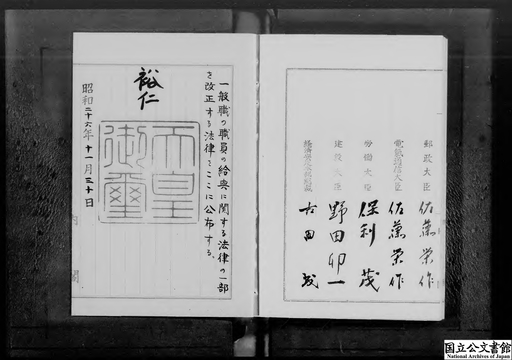 一般職の職員の給与に関する法律の一部
を改正する法律をここに公布する。
裕仁
天皇御璽
昭和二十六年十一月三十日
内閣
郵政大臣 佐藤榮作
電気通信大臣 佐藤榮作
労働大臣 保利茂
建設大臣 野田卯一
国立公文書館
National Archives of Japan